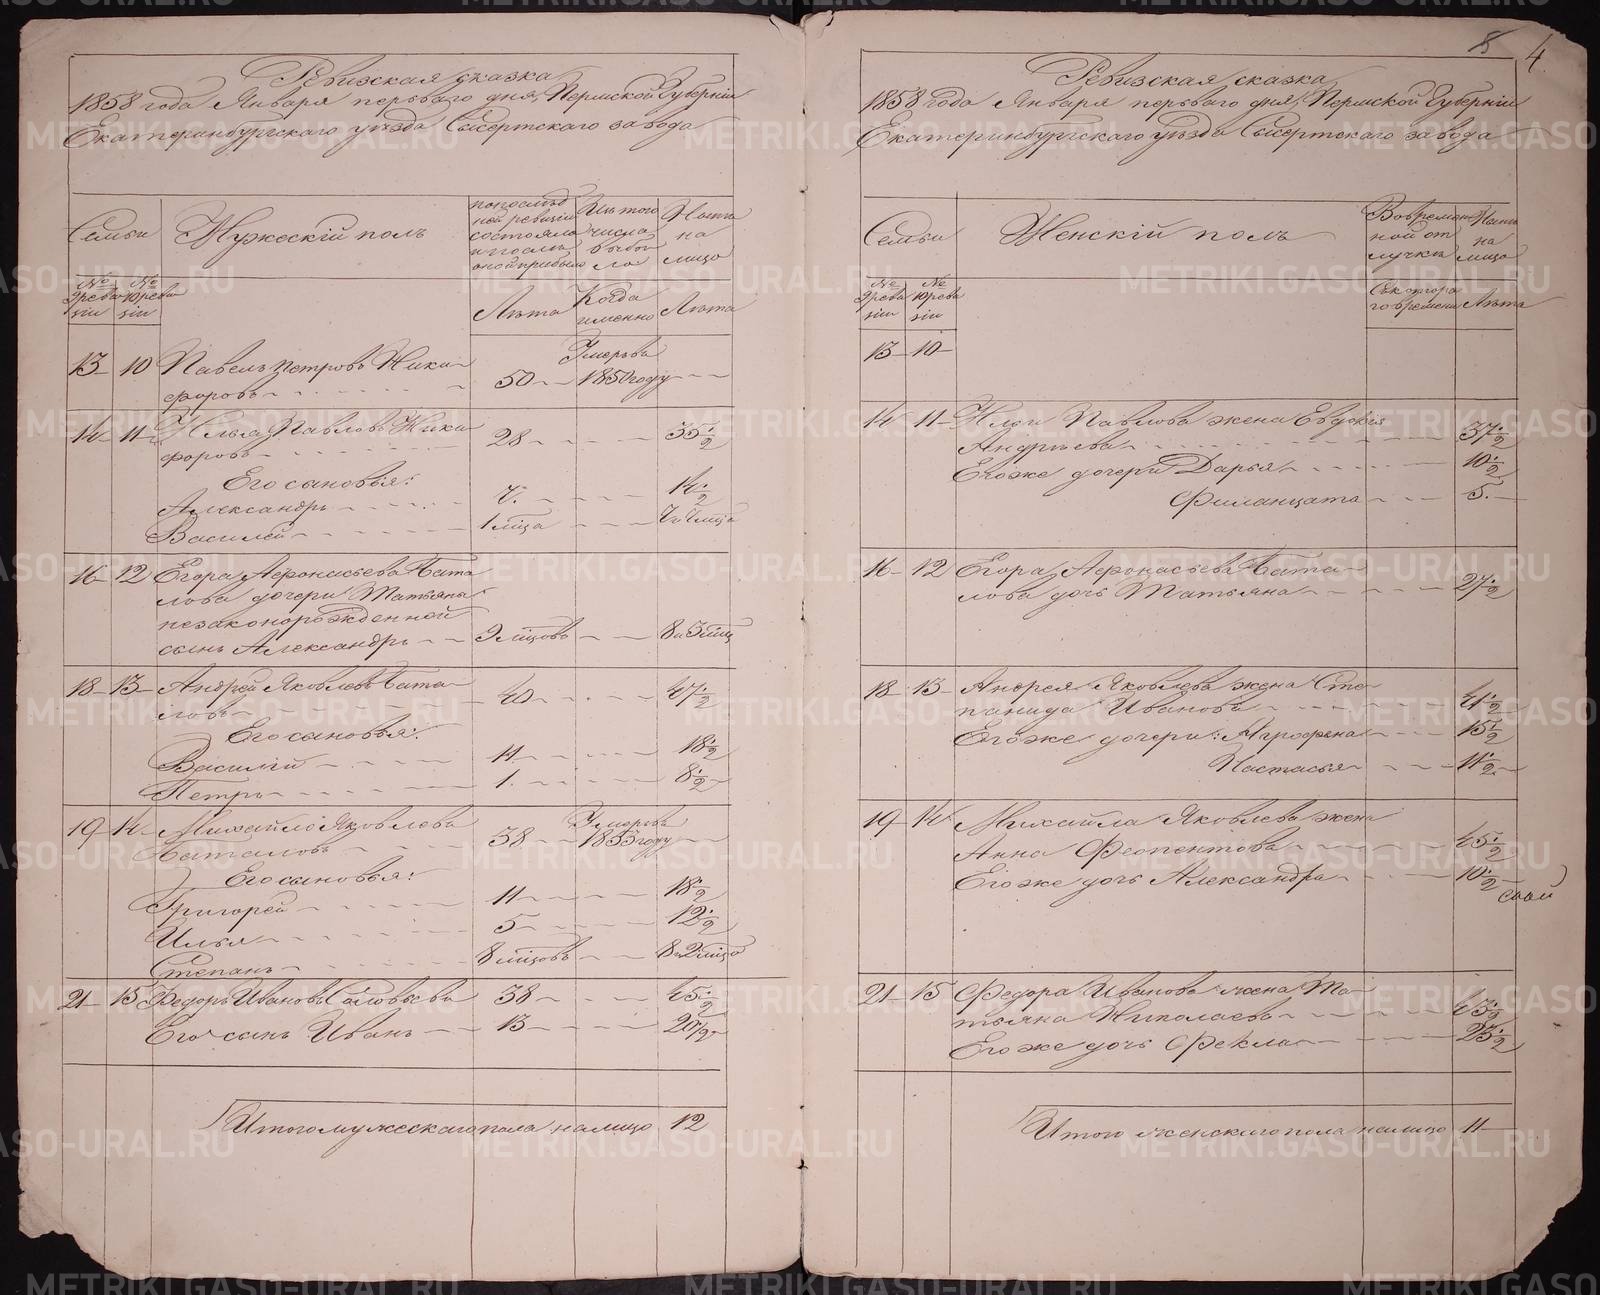 Ревизская сказка
1858 года Января перьваго дня, Пермской Губернiи
Екатеринбургскаго уѣзда Сысертскаго завода
Семьи
Мужескiй полъ
по послѣд
ней ревизiи
состояло
и после
оной прибыло
Изъ того
числа
выбы
ло
Ныне
на
лицо
№ 9 реви зiи
№ 10 реви зiи
Лѣта
Когда
именно
Лѣта
13 10 Павелъ Петровъ Ники
форовъ
50
Умеръ въ
1850 году
14 11 Илья Павловъ Ники
форовъ
28 35 1/2
Его сыновья:
Александръ 7. 14 1/2
Василей 1 мѣца 7 и 7 мѣцо
16 12 Егора Афонасьева Бата
лова дочери Татьяны
незаконорожденной
сынъ Александръ 9 мѣцовъ 8 и 5 мѣц
18 13 Андрей Яковлевъ Бата
ловъ 40 47 1/2
Его сыновья:
Василiй 11 18 1/2
Петръ 1. 8 1/2
19 14 Михайло Яковлева
Баталовъ 38
Умеръ въ
1853 году
Его сыновья:
Григорей 11 18 1/2
Илья 5 12 1/2
Степанъ 8 мѣцовъ 8 и 2 мѣцо
21 15 Федоръ Ивановъ Соловьева 38 45 1/2
Его сынъ Иванъ 13 20 1/2
Итого мужескаго пола на лицо 12
8 4
Ревизская сказка
1858 года Января перьваго дня, Пермской Губернiи
Екатеринбургскаго уѣзда Сысертскаго завода
Семьи
Женскiй полъ
Во времен
ной от
лучки
Ныне
на
лицо
№ 9 реви зiи
№ 10 реви зiи
Съ котора
го времени
Лѣта
13 10
14 11 Ильи Павлова жена Евдокiя
Андрiева 37 1/2
Его же дочери Дарья 10 1/2
Филанцата 5.
16 12 Егора Афонасьева Бата
лова дочь Татьяна 27 1/2
18 13 Андрея Яковлева жена Сте
панида Иванова 41 1/2
Его же дочери: Агрофена 15 1/2
Настасья 11 1/2
19 14 Михайла Яковлева жена
Анна Феопентова 45 1/2
Его же дочь Александра 10 1/2
21 15 Федора Иванова жена Та
тьяна Николаева 43 1/2
Его же дочь Фекла 23 1/2
Итого женскаго пола на лицо 11
METRIKI.GASO-URAL.RU